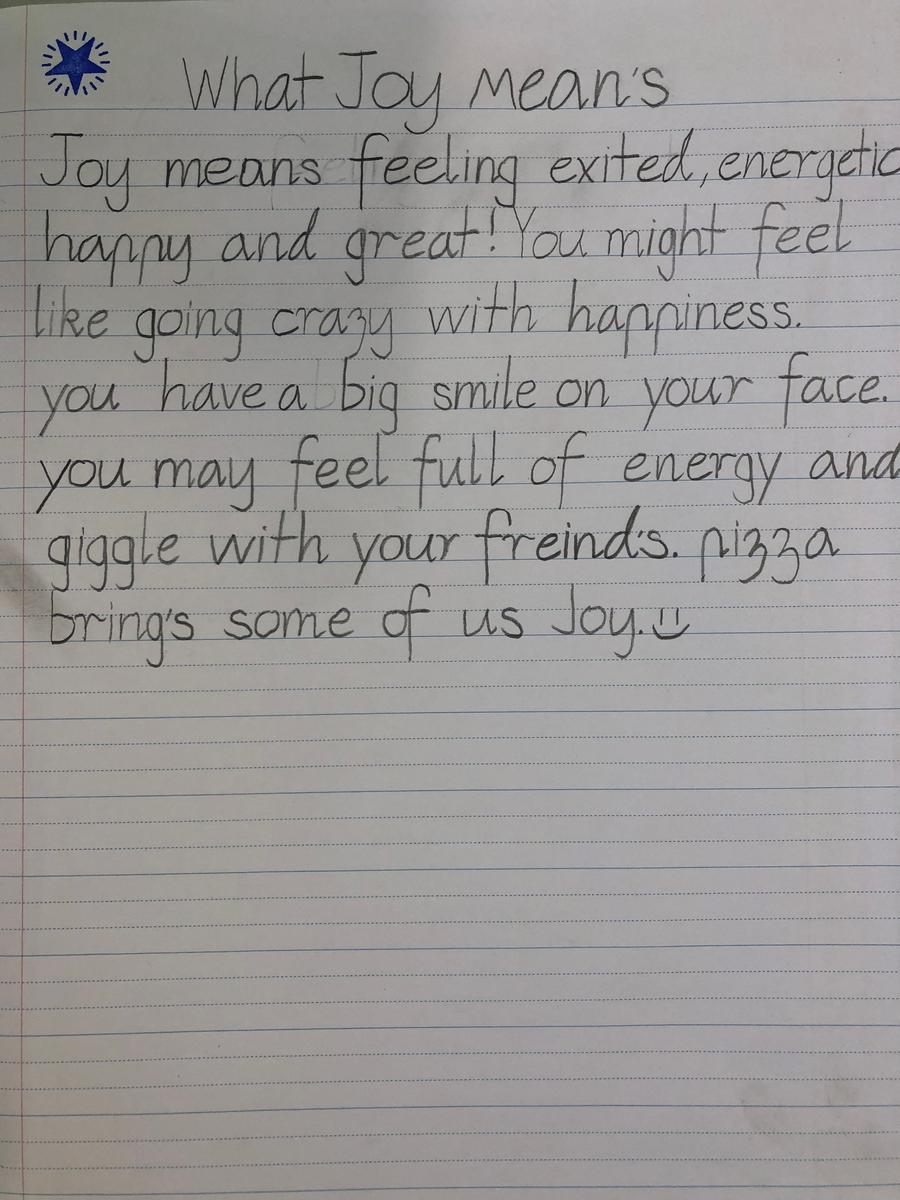 What Joy Mean's
Joy means feeling exited, energetic
happy and great! You might feel
like going crazy with happiness.
you have a big smile on your face.
you may feel full of energy and
giggle with your freind's. pizza
bring's some of us Joy.